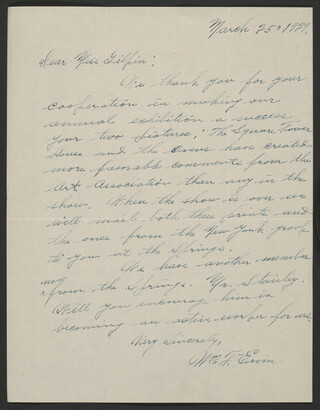 March 25th 1929.
Dear Miss Gilpin:
We thank you for your
cooperation in making our
annual exhibition a success
Your two pictures, "The Square Tower
House and the Circus have created
more favorable comments from the
Art Association than any in the
show. When the show is over we
will mail both these prints and
the ones from the New York group
to you at the Springs.
We have another member
now
from the Springs. Mr. Stanley.
Will you encourage him in
becoming an active worker for us.
Very Sincerely,
Wm. F. Ervin.